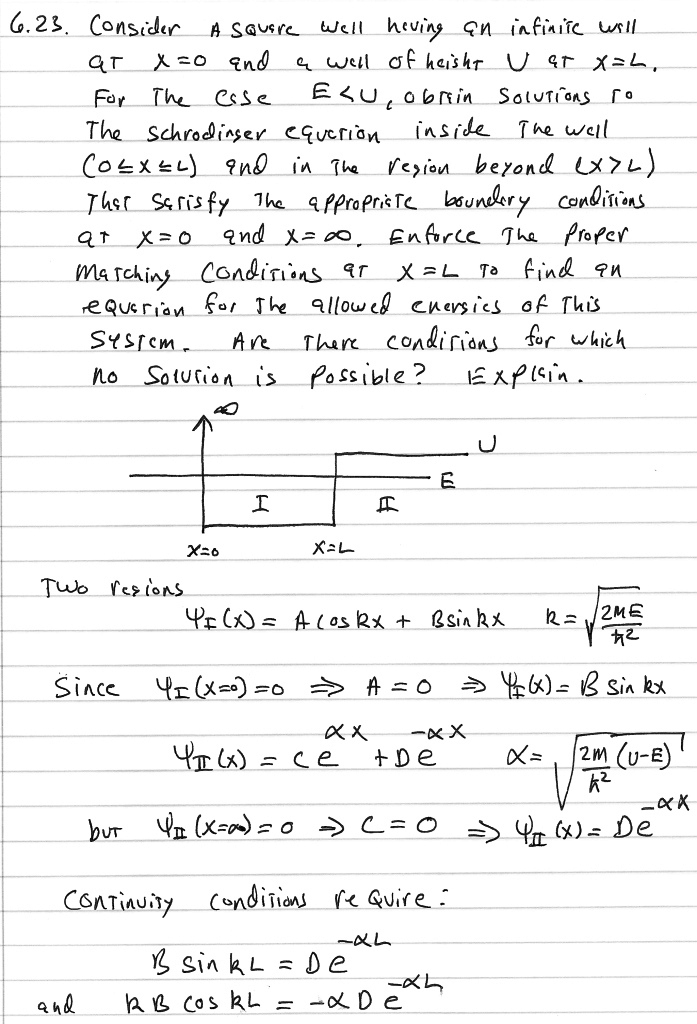 6.23. Consider a square well having an infinite wall
at x=0 and a wall of height U at x=L.
For the case E<U, obtain solutions to
the Schrodinger equation inside the well
(0≤x≤L) and in the region beyond (x>L)
that satisfy the appropriate boundary conditions
at x=0 and x=∞. Enforce the proper
matching conditions at x=L to find an
equation for the allowed energies of this
system. Are there conditions for which
no solution is possible? Explain.
∞
U
E
I II
x=0 x=L
Two regions
ψ_I(x) = A cos kx + B sin kx k = √(2mE/ħ²)
Since ψ_I(x=0)=0 ⇒ A=0 ⇒ ψ_I(x)= B sin kx
ψ_II(x) = Ce^{αx} + De^{-αx} α= √(2m/ħ² (U-E))
but ψ_II(x=∞)=0 ⇒ C=0 ⇒ ψ_II(x)= De^{-αx}
Continuity conditions require:
B sin kL = De^{-αL}
and kB cos kL = -αDe^{-αL}